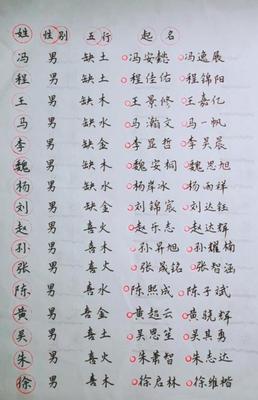 姓 性别 五行 起名
冯 男 缺土 冯安懿 冯逸辰
程 男 缺土 程佳佑 程锦阳
王 男 缺木 王景修 王嘉亿
马 男 缺水 马瀚文 马一帆
李 男 缺金 李昱哲 李昊晨
魏 男 缺木 魏安桐 魏思旭
杨 男 缺水 杨岸冰 杨雨祥
刘 男 缺金 刘锦宸 刘达钰
赵 男 喜火 赵乐志 赵达辉
孙 男 喜木 孙昇旭 孙耀楠
张 男 喜火 张成铭 张智涵
陈 男 喜水 陈熙成 陈子斌
黄 男 喜金 黄超云 黄骁辉
吴 男 喜土 吴思笙 吴其勇
朱 男 喜火 朱萧智 朱志达
徐 男 喜木 徐启林 徐维楷